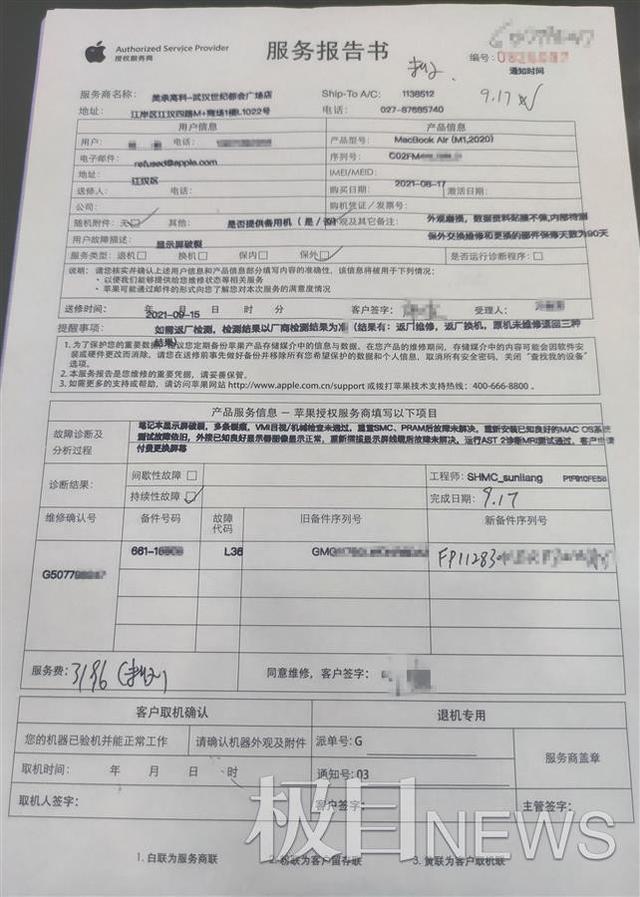 Authorized Service Provider
授权服务商
服务报告书
编号:
通知时间
9.17
服务商名称: 美承高科-武汉世纪都会广场店 Ship-To A/C: 1138512
地址: 江岸区江汉四路M+商场1楼L1022号 电话: 027-87685740
用户信息 产品信息
用户: 电话: 产品型号: MacBook Air (M1,2020)
电子邮件: refused@apple.com 序列号: C02FM
地址: 江汉区 IMEI/MEID:
送修人: 电话: 购买日期: 2021-08-17 激活日期:
公司: 购机凭证/发票号:
随机附件: 无 其他: 是否提供备用机(是/否) 外观及其它备注: 外观磨损,数据资料配膜不保,内部待测
保外交换维修和更换的部件保修天数为90天
用户故障描述: 显示屏破裂
服务类型: 退机□ 换机□ 保内□ 保外□ 是否运行诊断程序: □
说明: 请您核实并确认上述用户信息和产品信息部分填写内容的准确性,该信息将被用于下列情况:
• 以便我们能够提供给您维修状态等相关服务
• 苹果可能通过邮件的形式向您了解您对本次服务的满意度情况
送修时间: 2021-09-15 年 月 日 时 分 客户签字: 受理人:
提醒事项: 如需返厂检测,检测结果以厂商检测结果为准(结果有:返厂维修,返厂换机,原机未维修退回三种
结果)
1. 为了保护您的重要数据,建议您定期备份苹果产品存储媒介中的信息与数据。在您产品的维修期间,存储媒介中的内容可能会因软件安
装或硬件更改而消除。请您在送修前事先做好备份并移除所有您希望保护的数据和个人信息,取消所有安全密码,关闭“查找我的设备”
选项。
2. 本服务报告是您维修的重要凭据,请妥善保管。
3. 如需更多的支持或帮助,请访问苹果网站 http://www.apple.com.cn/support 或拨打苹果技术支持热线: 400-666-8800 。
产品服务信息 – 苹果授权服务商填写以下项目
故障诊断及
分析过程
笔记本显示屏破裂,多条裂痕,VMI目视/机械检查未通过,重置SMC、PRAM后故障未解决,重新安装已知良好的MAC OS系统
测试故障依旧,外接已知良好显示器图像显示正常,重新插拔显示屏线缆后故障未解决,运行AST 2诊断MRI测试通过,客户申请
付费更换屏幕
诊断结果: 间歇性故障 □ 工程师: SHMC_sunliang P1F910FE58
持续性故障 □ 完成日期: 9.17
维修确认号 备件号码 故障代码 旧备件序列号 新备件序列号
G50779 661-16 L36 GMG FP11283
服务费: 3196 同意维修,客户签字:
客户取机确认 退机专用
您的机器已验机并能正常工作 请确认机器外观及附件 派单号: G 服务商盖章
取机时间: 年 月 日 时 通知号: 03
取机人签字: 客户签字: 主管签字:
极目NEWS
1. 白联为服务商联 2. 粉联为客户留存联 3. 黄联为客户取机联